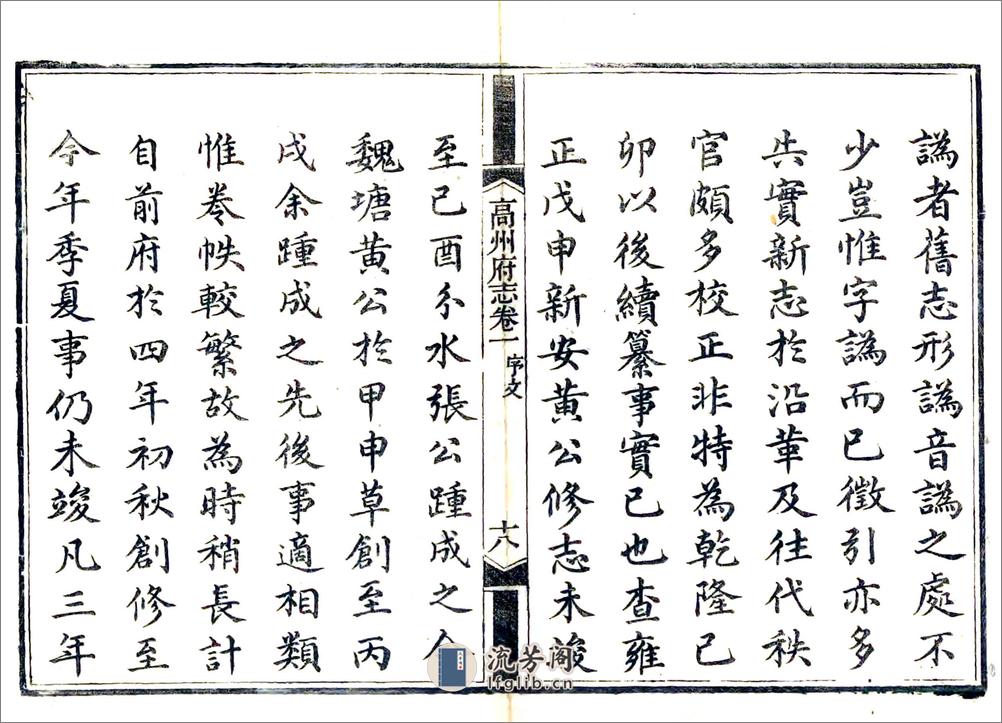 譌者舊志形譌音譌之處不
少豈惟字譌而已徵引亦多
失實新志於沿革及往代秩
官頗多校正非特為乾隆己
卯以後續纂事實已也查雍
正戊申新安黄公修志未竣
高州府志卷一 序文 十八
至已酉分水張公踵成之今
魏塘黄公於甲申草創至丙
戌余踵成之先後事適相類
惟卷帙較繁故為時稍長計
自前府於四年初秋創修至
今年季夏事仍未竣凡三年
流芳阁
lfglib.cn